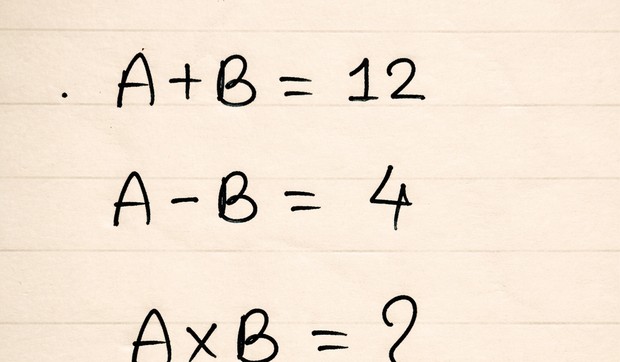 . A+B = 12
A - B = 4
A x B = ?